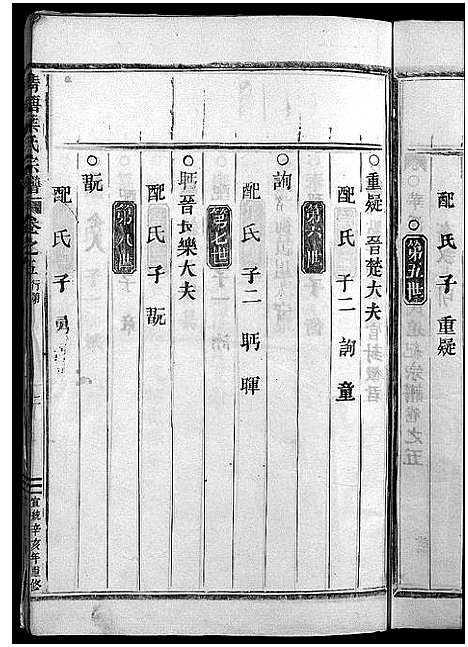 配氏子重疑
第五世
重疑 晉楚大夫
配氏子二 詢 童
第六世
詢
配氏子二 眄 暉
第七世
眄晉長樂大夫
配氏子翫
第八世
翫
配氏子勇
氏宗譜 卷之五 行
宣統辛亥年重修